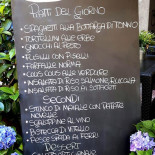 Piatti del Giorno
• Spaghetti alla Bottarga di Tonno
• Tortellini alle Erbe
• Gnocchi al Pesto
• Fusilli con Piselli
• Farfalle Norma
• Cous Cous alle Verdure
• Insalata di Riso Salmone e Rucola
• Insalata di Riso ai Sottaceti
Secondi
• Stinco di Maiale con Patate Novelle
• Scaloppine al Vino
• Bistecca di Vitello
• Pesce Spada ai Ferri
Dessert